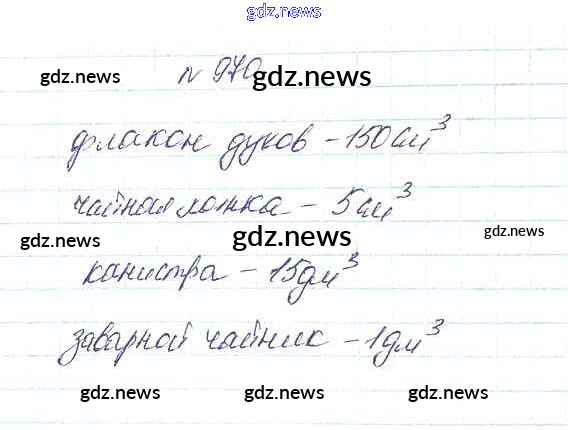 gdz.news
№ 970
gdz.news gdz.news
флакон духов - 150 см³
чайная ложка - 5 см³
gdz.news gdz.news gdz.news
канистра - 15 дм³
заварной чайник - 1 дм³
gdz.news gdz.news gdz.news